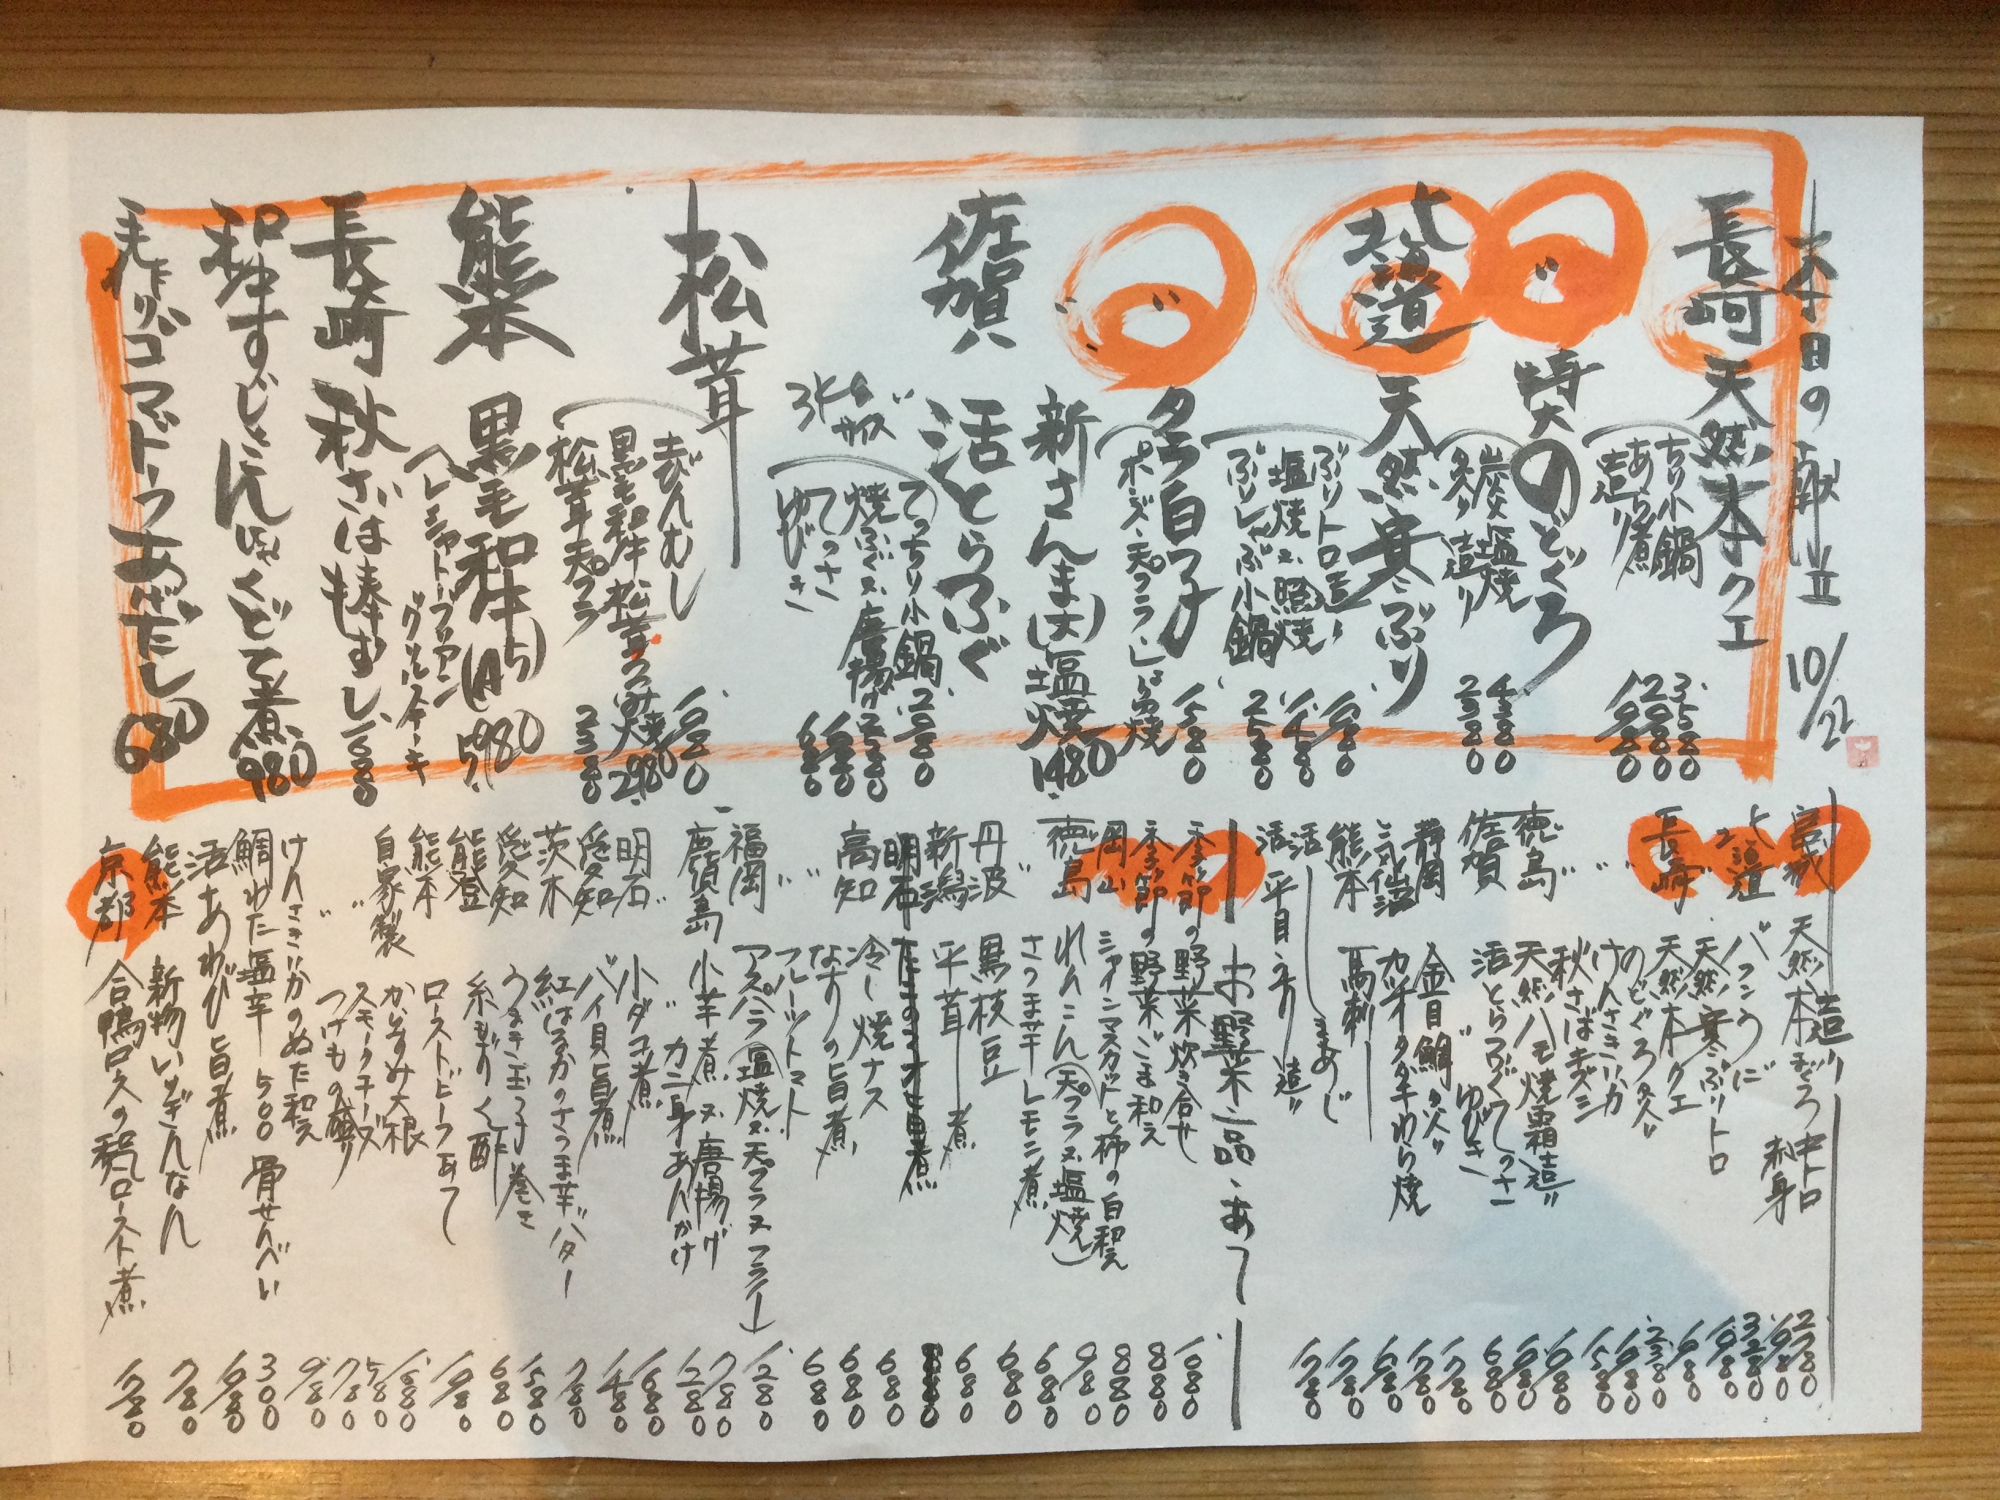 本日の献立 10/22
長崎 天然本クエ
ちり小鍋 3580
あら煮 2080
造り 1980
〃 特大のどぐろ
炭火塩焼 4380
炙り造り 2380
北海道 天然寒ぶり
ぶりトロ造り 1980
塩焼又は照焼 1480
ぶりしゃぶ小鍋 2580
〃 タラ白子
ポン酢・天プラ 1580
〃 新さんま(大)塩焼 1480
佐賀 活とらふぐ
3kgサイズ
てっちり小鍋 2080
焼ふぐ又は唐揚げ 2380
てっさ
ゆびき 680
松茸
土びんむし 1080
黒毛和牛松茸つつみ焼 2980
松茸天プラ 2380
熊本 黒毛和牛(A5) 5,980
ヘレシャトーブリアン
グリルステーキ
長崎 秋さば棒すし 1680
和牛すじこんにゃくどて煮 980
手作りゴマドーフあげだし 680
造り
宮城 天然本まぐろ中トロ 2780
刺身 1980
北海道 バフンうに 3280
〃 天然寒ぶりトロ 1980
長崎 天然本クエ
〃 のどぐろ炙り 2380
〃 けんさきいか
〃 秋さばきずし 1580
徳島 天然ハモ焼霜造り
佐賀 活とらふぐてっさ
〃 ゆびき 680
静岡 金目鯛炙り
気仙沼 カツオタタキわら焼
熊本 馬刺し
活 しまあじ
活 平目 造り
お野菜・一品・あて
季節の野菜炊き合せ 1080
季節の野菜ごま和え 880
岡山 シャインマスカットと柿の白和え 880
徳島 れんこん(天プラ又は塩焼) 980
〃 さつま芋レモン煮 680
丹波 黒枝豆 680
新潟 平茸煮 680
高知 冷し焼ナス 680
〃 なすの旨煮 680
〃 フルーツトマト 680
福岡 アスパラ(塩焼又は天プラ又はフライ) 1280
鹿児島 小芋煮又は唐揚げ 780
〃 カニ身あんかけ 1280
明石 小ダコ煮 1680
愛知 バイ貝旨煮 1480
茨木 紅はるかのさつま芋バター 780
愛知 うなぎ玉子巻き 1580
能登 糸もずく酢 680
熊本 ローストビーフあて 1980
自家製 からすみ大根 1680
〃 スモークチーズ 580
〃 つけもの盛り 780
けんさきいかのぬた和え 980
鯛わた塩辛 500 骨せんべい 300
活あわび旨煮 1980
熊本 新物いぎんなん 780
京都 合鴨ロースの和風ロースト煮 1780